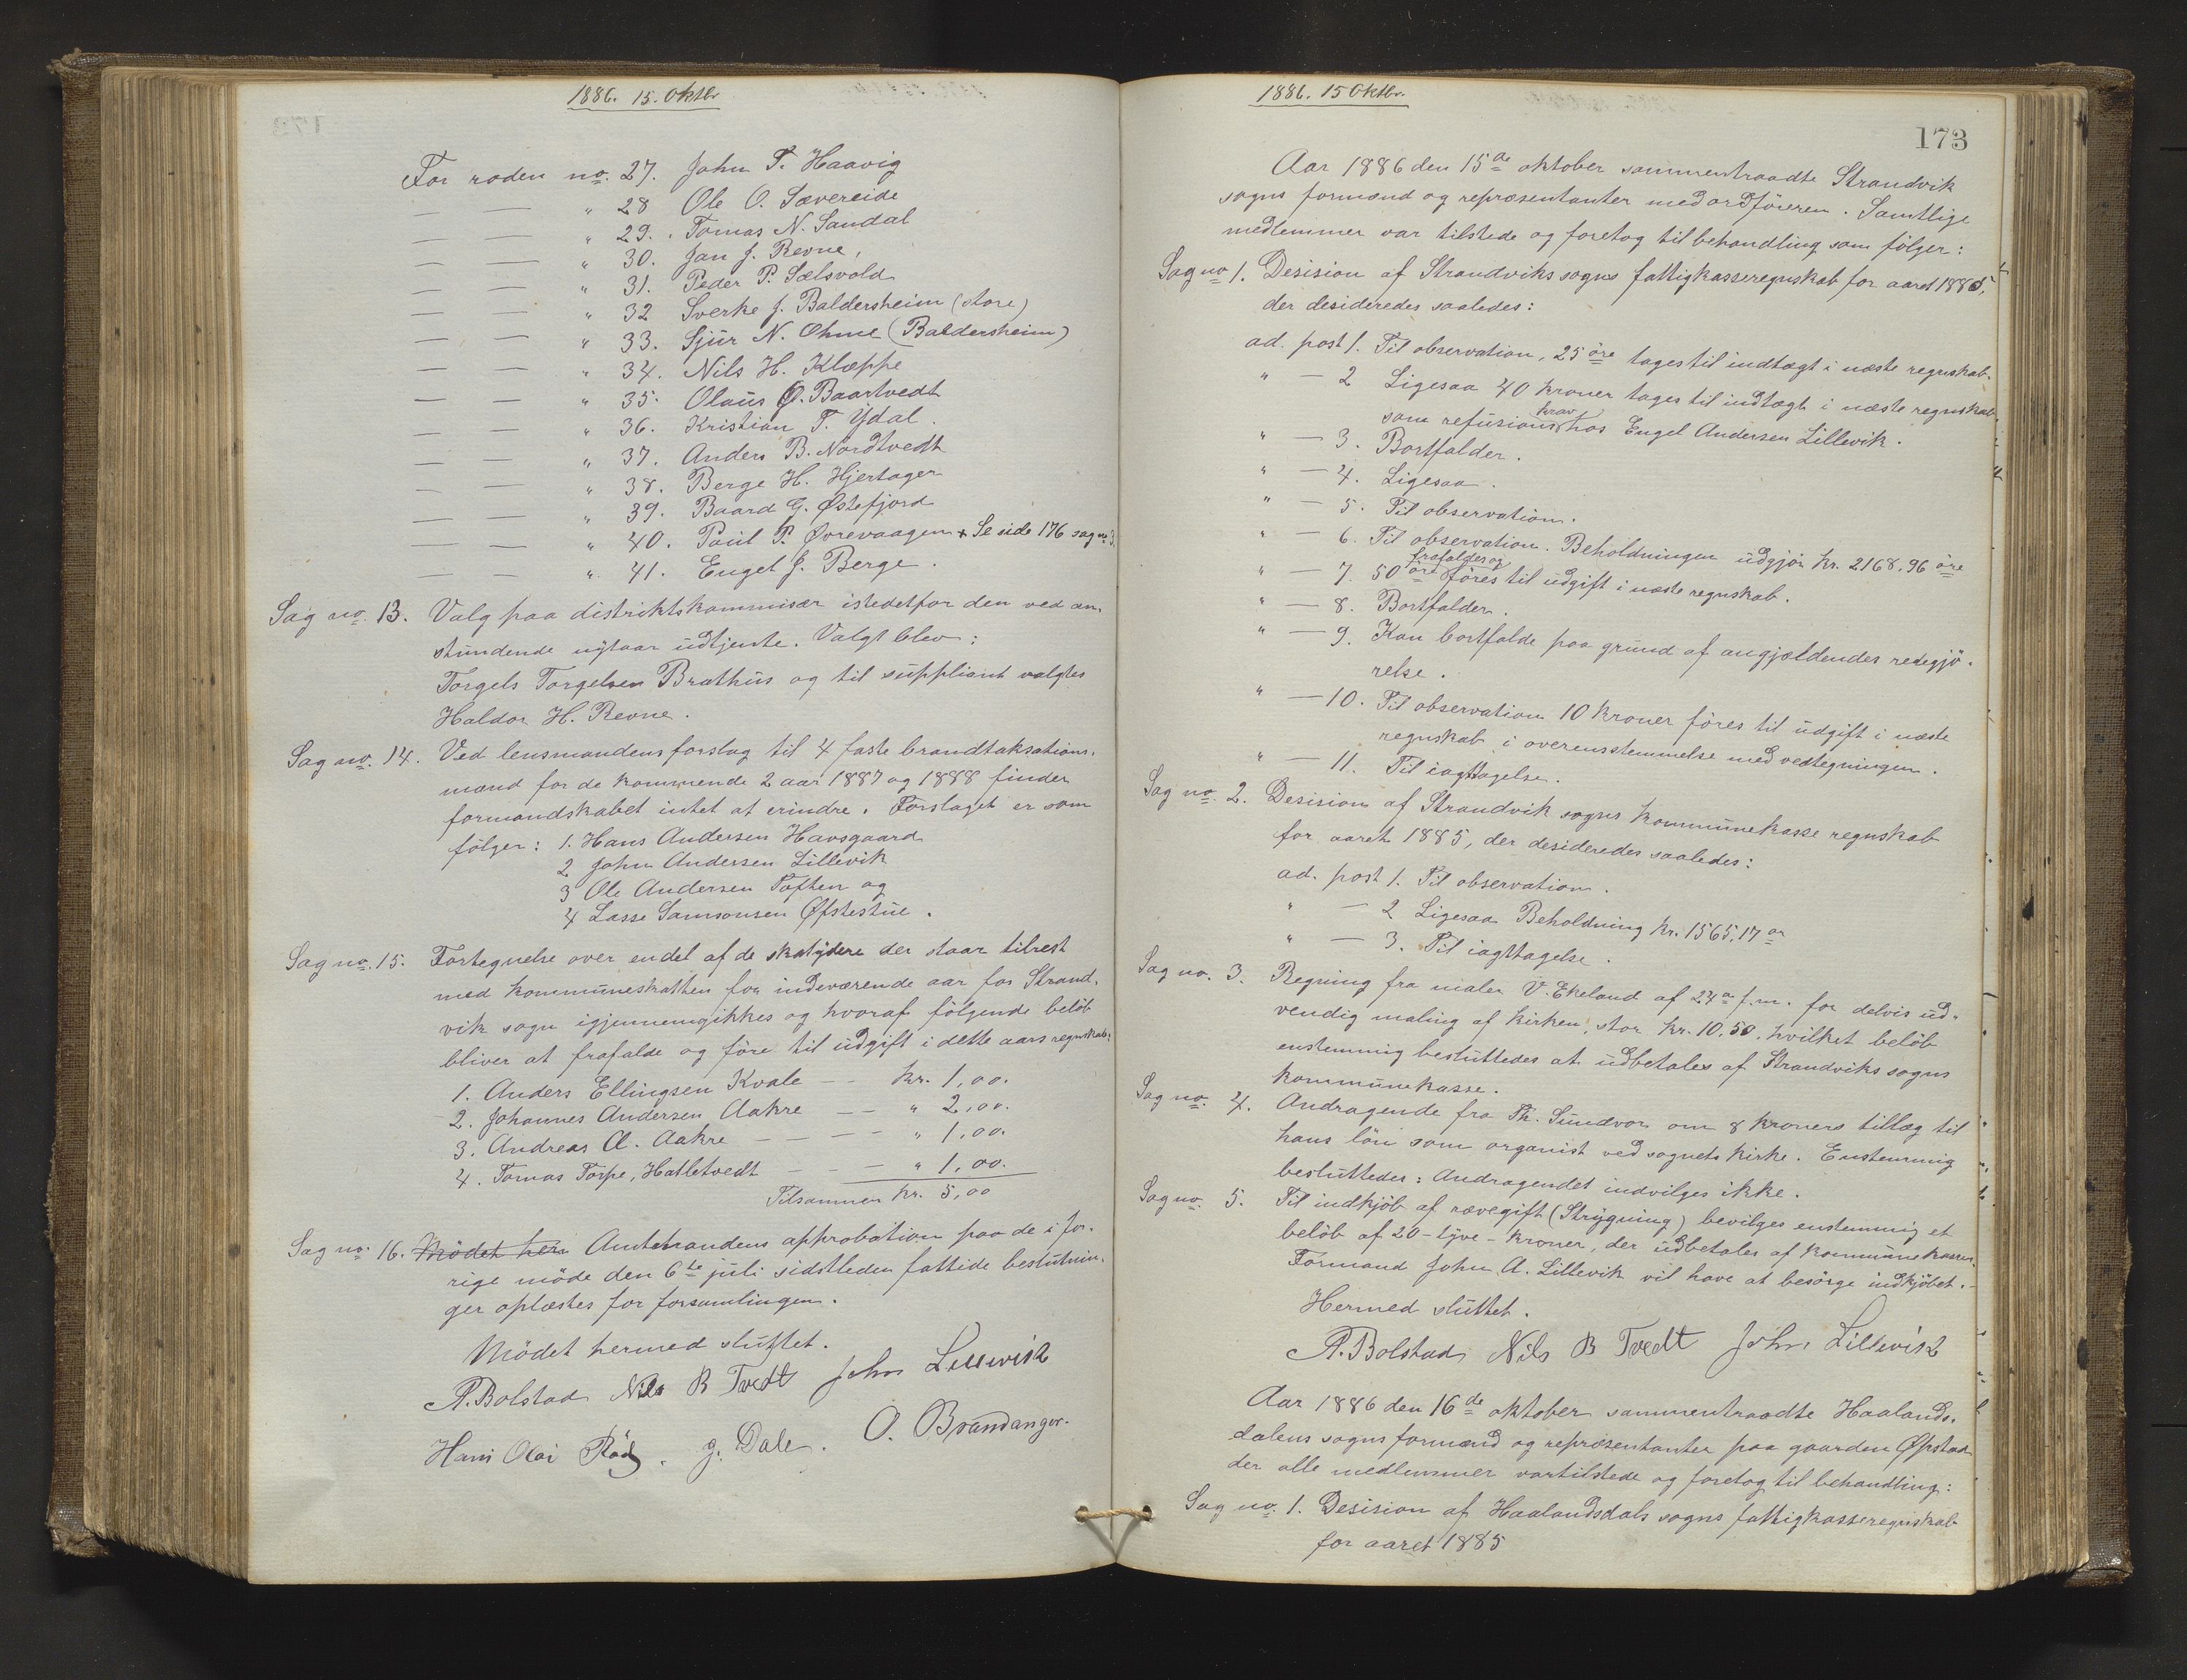 1886. 15. Oktbr
For roden no. 27. John T. Haavig
— — " 28 Ole O. Sævereide
— — " 29. Tomas N. Sandal
— — " 30. Jan J. Revne,
— — " 31. Peder P. Sælsvold
— — " 32 Sverke J. Baldersheim (store)
— — " 33. Sjur N. Ohme (Baldersheim)
— — " 34. Nils H. Kleppe
— — " 35. Olaus O. Baartvedt
— — " 36. Kristian T. Ydal.
— — " 37. Anders B. Nordtvedt
— — " 38. Berge H. Hjertager
— — " 39. Baard G. Østefjord
— — " 40. Paul P. Øvrevaagen + Se side 176 sag no 3.
— — " 41. Engel J. Berge.
Sag no. 13. Valg paa distriktskommisær istedetfor den ved an-
stundende nytaar udtjente. Valgt blev:
Torgels Torgelsen Brathus og til suppliant valgtes
Haldor H. Revne.
Sag no. 14. Ved lensmandens forslag til 4 faste brandtaksations-
mænd for de kommende 2 aar 1887 og 1888 finder
formandskabet intet at erindre. Forslaget er som
følger: 1. Hans Andersen Havsgaard
2 John Andersen Lillevik
3 Ole Andersen Toften og
4 Lasse Samsonsen Øfstestue.
Sag no. 15. Fortegnelse over endel af de skatydere der staar tilrest
med kommuneskatten for indeværende aar for Strand-
vik sogn igjennemgikkes og hvoraf følgende beløb
bliver at frafalde og føre til udgift i dette aars regnskab:
1. Anders Ellingsen Kvale — — kr. 1,00.
2. Johannes Andersen Aakre — — " 2,00.
3. Andreas A. Aakre — — — — " 1,00.
4. Tomas Torpe, Hatletvedt — — — " 1,00.
Tilsammen kr. 5,00
Sag no. 16. Mødet her Amtmandens approbation paa de i for-
rige møde den 6te juli sidstleden fattede beslutnin-
ger oplæstes for forsamlingen.
Mødet hermed sluttet.
A. Bolstad Nils B Tvedt John Lillevik
Hans Olai Röd. J. Dale. O. Brandanger.
1886. 15 Oktbr.
173
Aar 1886 den 15de oktober sammentraadte Strandvik
sogns formænd og repræsentanter med ordføreren. Samtlige
medlemmer var tilstede og foretog til behandling som følger:
Sag no 1. Desision af Strandviks sogns fattigkasseregnskab for aaret 1885,
der desideredes saaledes:
ad. post 1. Til observation, 25 øre tages til indtægt i næste regnskab.
" — 2 Ligesaa 40 kroner tages til indtægt i næste regnskab
som refusions krav hos Engel Andersen Lillevik.
" — 3. Bortfalder.
" — 4. Ligesaa.
" — 5. Til observation.
" — 6. Til observation. Beholdningen udgjør kr. 2168,96 øre
" — 7. 50 øre frafaldes og føres til udgift i næste regnskab.
" — 8. Bortfalder.
" — 9. Kan bortfalde paa grund af angjældendes redegjø-
relse.
" — 10. Til observation 10 kroner føres til udgift i næste
regnskab i overensstemmelse med vedtegningen.
" — 11. Til iagttagelse.
Sag no. 2. Desision af Strandvik sogns kommunekasse regnskab
for aaret 1885, der desideredes saaledes:
ad. post 1. Til observation.
" — 2 Ligesaa Beholdning kr. 1565,17 ør
" — 3. Til iagttagelse.
Sag no. 3. Regning fra maler V. Ekeland af 24de f.m. for delvis ud-
vendig maling af kirken, stor kr. 10.50, hvilket beløb
enstemmig besluttedes at udbetales af Strandviks sogns
kommunekasse.
Sag no. 4. Andragende fra Th. Sundvor om 8 kroners tillæg til
hans løn som organist ved sognets kirke. Enstemmig
besluttedes: Andragendet indvilges ikke.
Sag no. 5. Til indkjøb af rævegift (Strygning) bevilges enstemmig et
beløb af 20 - tyve - kroner, der udbetales af kommunekassen.
Formand John A. Lillevik vil have at besørge indkjøbet.
Hermed sluttet.
A. Bolstad Nils B Tvedt John Lillevik
Aar 1886 den 16de oktober sammentraadte Haalands-
dalens sogns formænd og repræsentanter paa gaarden Øpstad
der alle medlemmer var tilstede og foretog til behandling:
Sag no. 1. Desision af Haalandsdals sogns fattigkasseregnskab
for aaret 1885